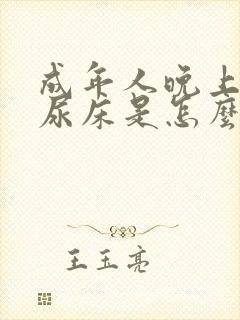 成年人晚上
尿床是怎麽
王玉亮